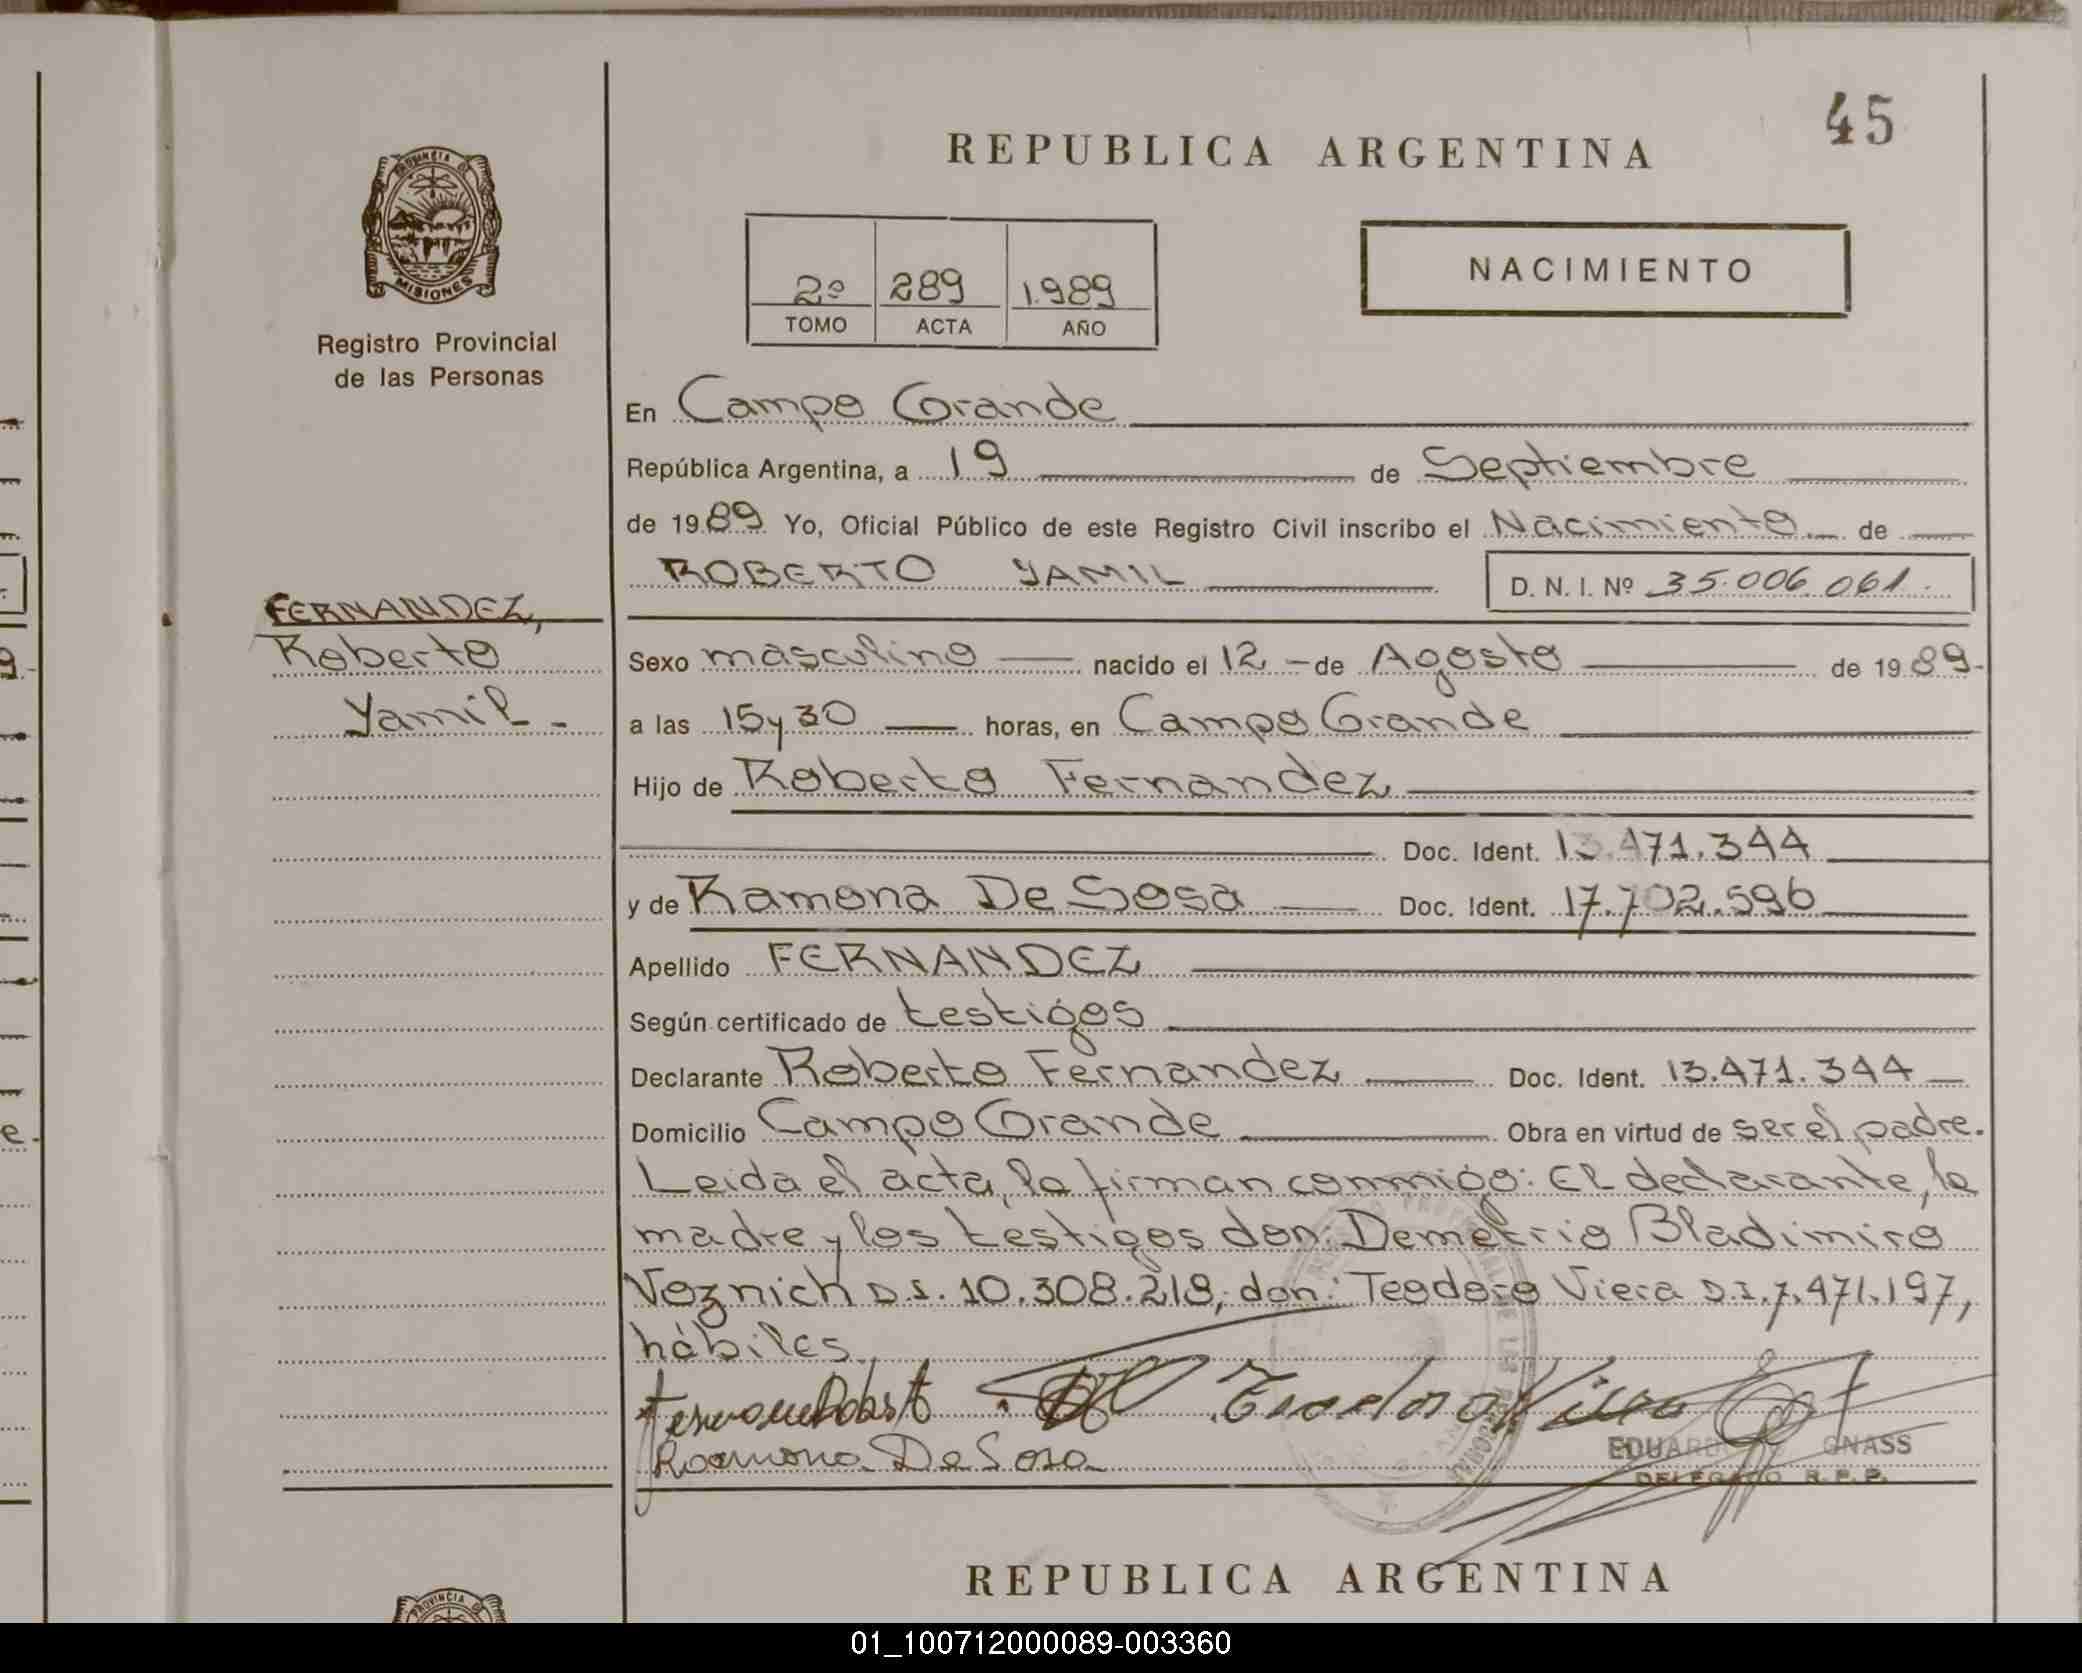 45
REPUBLICA ARGENTINA
PROVINCIA DE
MISIONES
Registro Provincial
de las Personas
2º 289 1.989
TOMO ACTA AÑO
NACIMIENTO
En Campo Grande
República Argentina, a 19 de Septiembre
de 1989 Yo, Oficial Público de este Registro Civil inscribo el Nacimiento de
ROBERTO YAMIL D. N. I. Nº 35.006.061.
FERNANDEZ,
Roberto
Yamil -
Sexo masculino nacido el 12 - de Agosto de 1989-
a las 15 y 30 horas, en Campo Grande
Hijo de Roberto Fernandez
Doc. Ident. 13.471.344
y de Ramona De Sosa Doc. Ident. 17.702.596
Apellido FERNANDEZ
Según certificado de testigos
Declarante Roberto Fernandez Doc. Ident. 13.471.344
Domicilio Campo Grande Obra en virtud de ser el padre.
Leida el acta, la firman conmigo: El declarante, la
madre y los testigos don: Demetrio Bladimiro
Voznich D.I. 10.308.218, don: Teodoro Viera D.I. 7.471.197,
hábiles.
Teodoro Viera
Ramona De Sosa
EDUARDO GNASS
DELEGADO R.P.P.
REPUBLICA ARGENTINA
PROVINCIA D
01_100712000089-003360